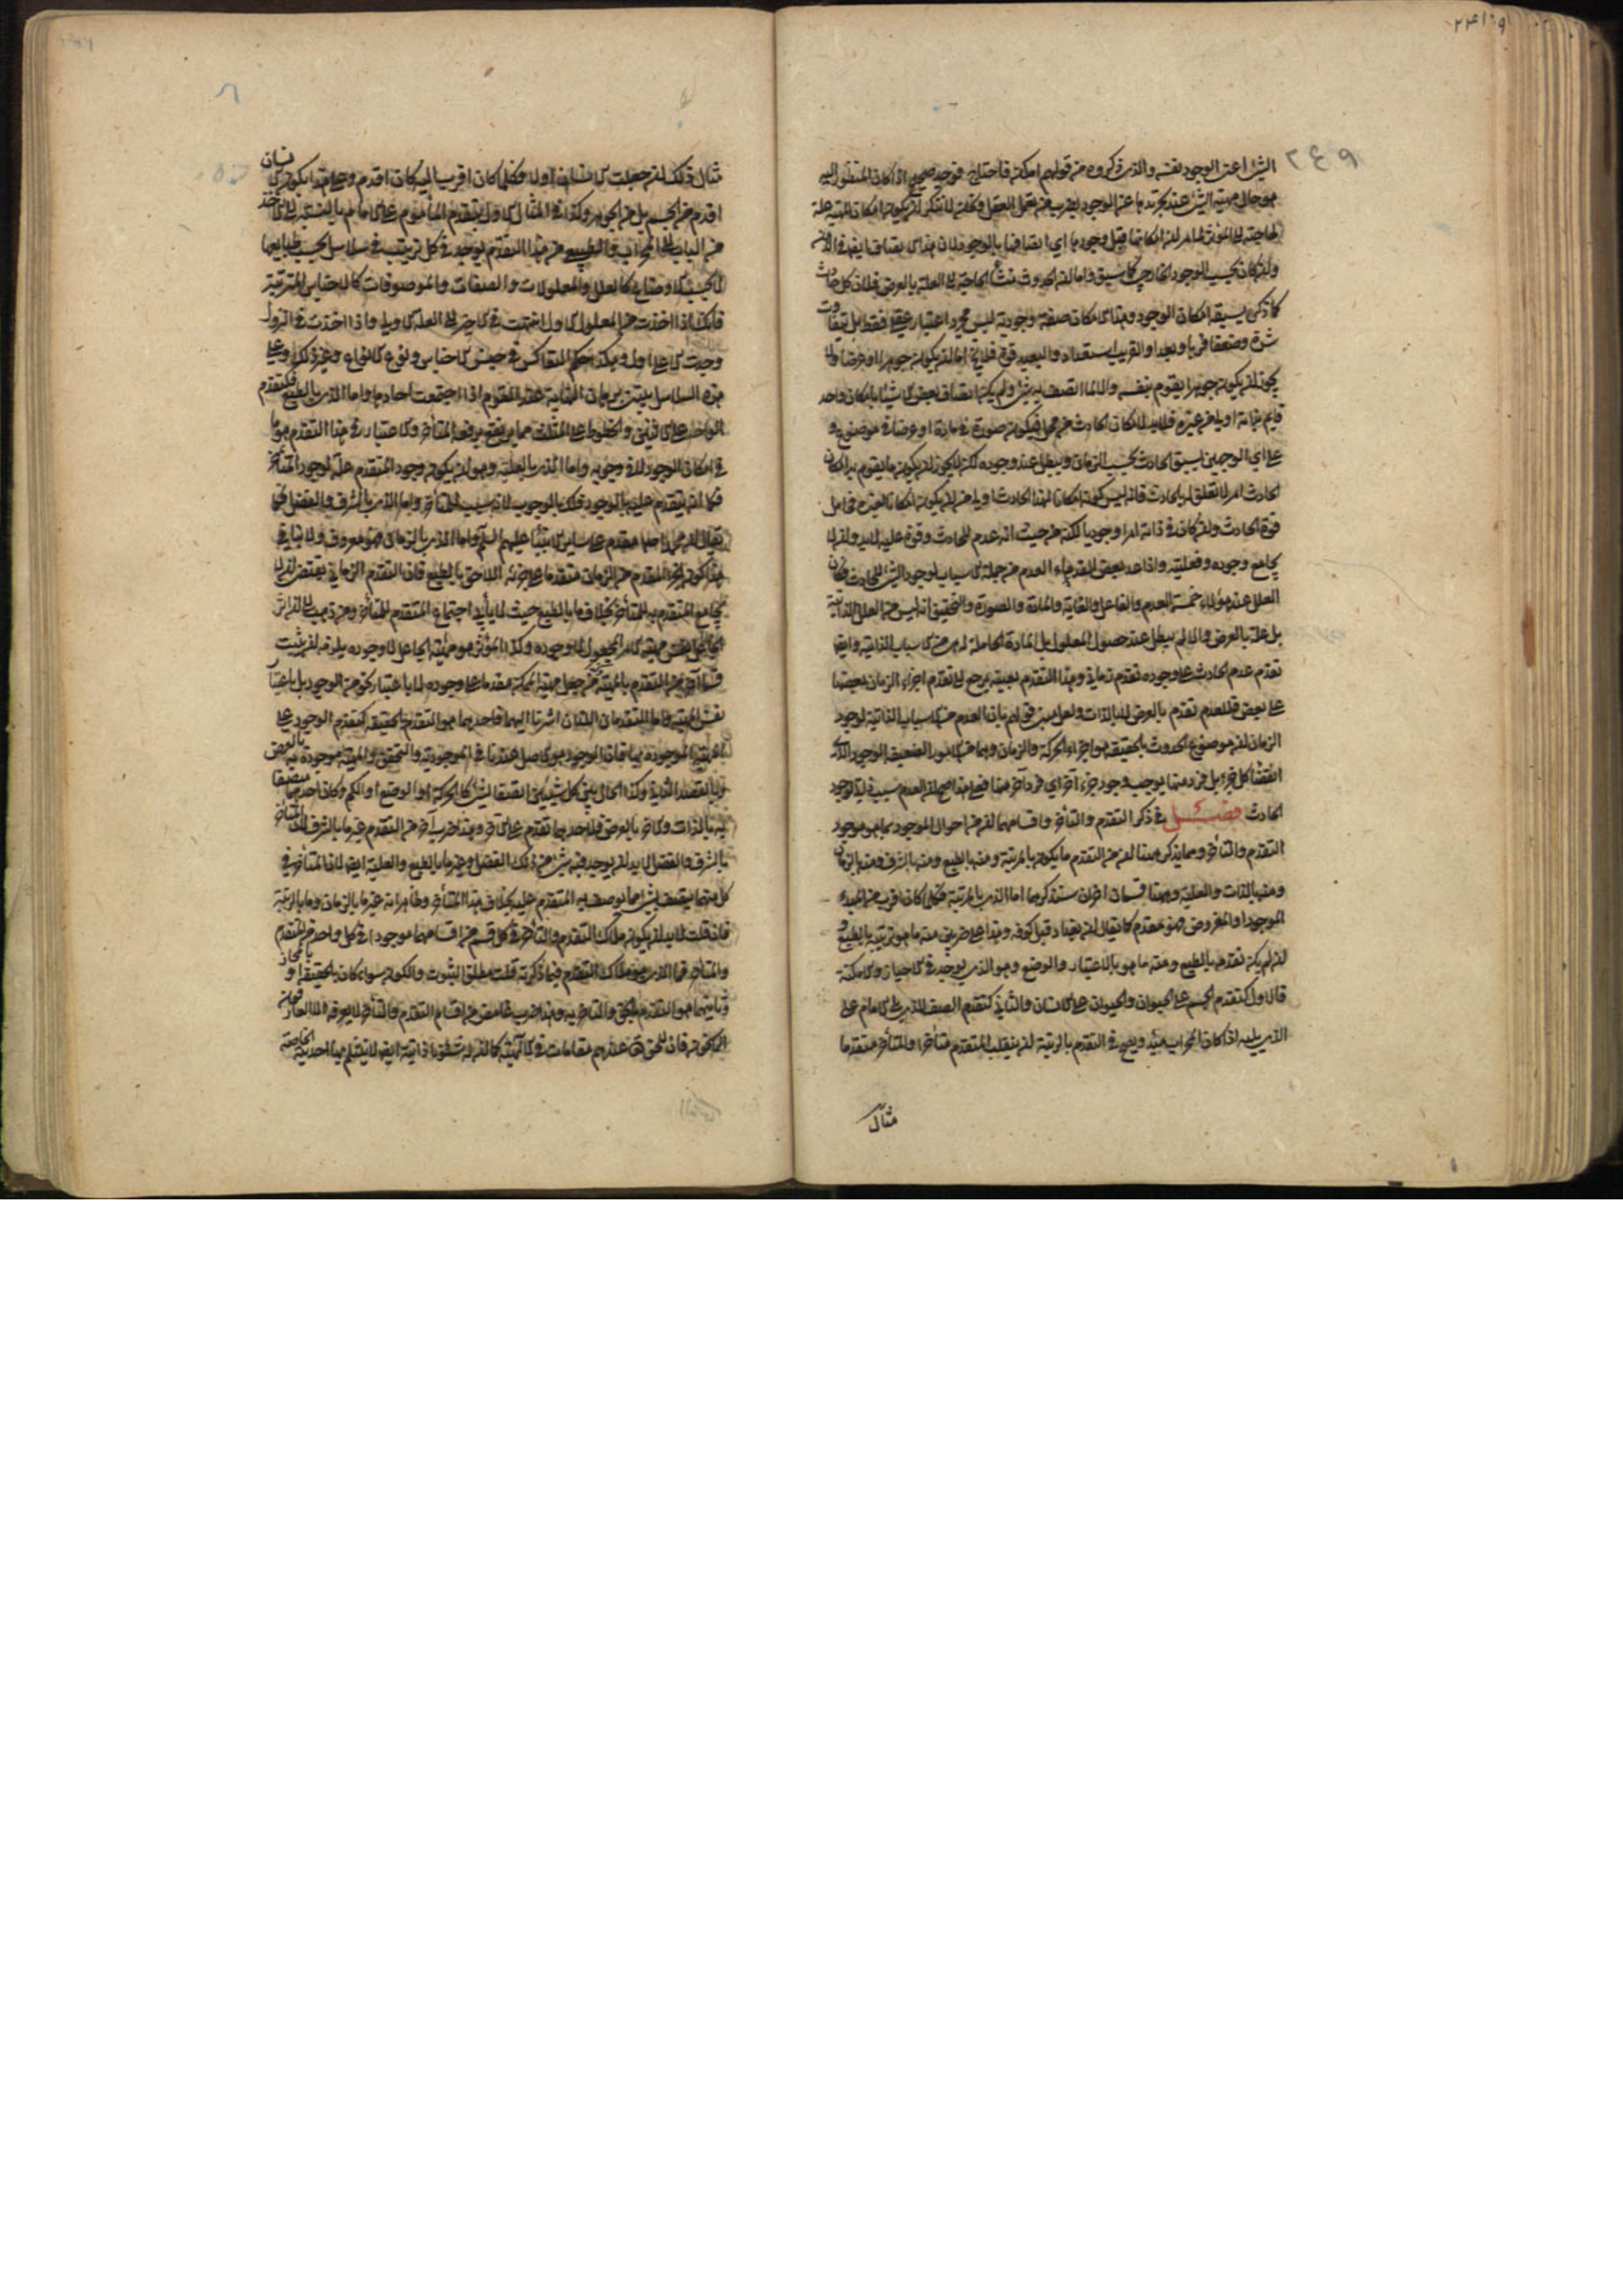 ٢٤٩
الشئ اعنى الوجود نفسه والذى ذكروه من قولهم امكن فاحتاج فوجد صحيح اذ كان المنظور اليه
هو حال مهية الشئ عند تجردها عن الوجود بضرب من تعمل العقل فحينئذ لا ننكر ان يكون امكان المهية علة
لحاجتها الى المؤثر لما مر ان امكانها قبل وجودها اى اتصافها بالوجود لان هذا الاتصاف ايضا فى الذهن
وان كان بحسب الوجود الخارجى كما سبق واما ان الحدوث منشأ الحاجة الى العلة بالعرض فلان كل حادث
كما ذكر يسبقه امكان الوجود وهذا الامكان صفة وجودية ليس مجرد اعتبار عقلى فقط بل يتفاوت
شدة وضعفا قربا وبعدا والقريب استعداد والبعيد قوة فلا يخ اما ان يكون جوهرا او عرضا ولا
يجوز ان يكون جوهرا يقوم بنفسه والا لما اتصف به شئ ولم يكن اتصاف بعض الاشياء بامكان واحد
قايم بذاته اولى من غيره فلابد لامكان الحادث من محل فيكون صورة فى مادة او عرضا فى موضوع و
على اى الوجهين يسبق الحادث بحسب الزمان ويبطل عند وجوده لكن لا يجوز ان يكون ما يقوم به امكان
الحادث امرا لا تعلق له بالحادث فانه ليس كونه امكانا لهذا الحادث اولى من ان يكون امكانا لغيره فحامل
قوة الحادث وان كان فى ذاته امرا وجوديا لكنه من حيث انه عدم للحادث وقوة عليه لابد وان لا
يجامع وجوده وفعليته ولذا عد بعض القدماء العدم من جملة الاسباب لوجود الشئ الحادث فكان
العلل عند هؤلاء خمسة العدم والفاعل والغاية والمادة والصورة والتحقيق انه ليس من العلل الذاتية
بل علة بالعرض والا لم يبطل عند حصول المعلول بل المادة الحاملة له هى من الاسباب الذاتية وايضا
تقدم عدم الحادث على وجوده تقدم زمانى وهذا التقدم بعينه يرجع الى تقدم اجزاء الزمان بعضها
على بعض فللعدم تقدم بالعرض لا بالذات ولعل من قولهم بان العدم من الاسباب الذاتية لوجود
الزمان ان موضوع الحدوث بالحقيقة هو اجزاء الحركة والزمان وهما من الامور الضعيفة الوجود
انقضاء كل جزء بل فرد منها يوجب وجود جزء اخر اى فرد اخر منها فعلى هذا صح ان العدم سبب ذاتى لوجود
الحادث فصل فى ذكر التقدم والتأخر واقسامهما ان من احوال الموجود بما هو موجود
التقدم والتأخر ومما يذكر ههنا ان من التقدم ما يكون بالمرتبة ومنه بالطبع ومنه بالشرف ومنه بالزمان
ومنه بالذات والعلية وههنا قسمان اخران سنذكرهما اما الذى بالمرتبة فكلما كان اقرب من المبدء
الموجود او المفروض فهو مقدم كما يقال ان بغداد قبل كوفة وهذا على ضربين منه ما هو ترتيبه بالطبع و
ان لم يكن تقدمه بالطبع ومنه ما هو بالاعتبار والوضع وهو الذى يوجد فى الاحياز والامكنة
فالاول كتقدم الجسم على الحيوان والحيوان على الانسان والثانى كتقدم الصف الذى يلى الامام على
الذى يليه اذا كان المحراب مبدء ويصح فى التقدم بالرتبة ان ينقلب المتقدم متأخرا والمتأخر متقدما
مثال
مثال ذلك ان جعلت الانسان اولا فكلما كان اقرب اليه كان اقدم وعلى هذا يكون الانسان
اقدم من الجسم بل من الجوهر وكذا فى المثال الاول يتقدم المأموم على الامام بالنسبة الى الآخذ
من الباب الى المحراب والطبيعى من هذا التقدم يوجد فى كل ترتيب فى سلاسل بحسب طبايعها
لا بحسب الاوضاع كالعلل والمعلولات والصفات والموصوفات كالاجناس المترتبة
فانك اذا اخذت من المعلول الاول انتهيت فى الاخر الى العلة الاولى واذا اخذت فى النزول
وجدت الاعلى اولا وهكذا حكم التعاكس فى جنس الاجناس ونوع الانواع وغير ذلك وعلى
هذه السلاسل يبتنى برهان النهاية عند القوم اذا اجتمعت احادها واما الذى بالطبع فكتقدم
الواحد على الاثنين والخطوط على المثلث مما يرتفع برفعه المتأخر والاعتبار فى هذا التقدم هو ما
فى امكان الوجود لا فى وجوبه واما الذى بالعلية وهو ان يكون وجود المتقدم علة لوجود المتأخر
فكما انه يتقدم عليه بالوجود فكذلك بالوجوب لانه سبب للمتأخر واما الذى بالشرف والفضل فكما
يقال ان محمدا صلعم مقدم على ساير الانبياء عليهم السلام واما الذى بالزمان فهو معروف ولا ينافى
هذا كون الجزء المقدم من الزمان متقدما على جزئه اللاحق بالطبع فان التقدم الزمانى يقتضى ان لا
يجامع المتقدم به المتأخر بخلاف ما بالطبع حيث لا يأبى اجتماع المتقدم للمتأخر ومن ذهب الى ان اثر
الجاعل نفس مهية الامر المجعول لا وجوده وكذا المؤثر هو مهية الجاعل لا وجوده يلزمه ان يثبت
قسما آخر من التقدم بالمهية فمن جعل مهية الممكن مقدما على وجوده لا باعتبار نحو من الوجود بل باعتبار
نفس المهية واما التقدمان اللذان اشرنا اليهما فاحدهما هو التقدم بالحقيقة كتقدم الوجود على
المهية الموجودة به فان الوجود هو الاصل عندنا فى الموجودية والتحقق والمهية موجودة به بالعرض
وبالقصد الثانى وكذا الحال بين كل شيئين اتصفا بشئ كالحركة او الوضع او الكم وكان احدهما متصفا
به بالذات والاخر بالعرض فلاحدهما تقدم على الاخر وهذا ضرب آخر من التقدم غير ما بالشرف لان المتأخر
بالشرف والفضل لابد ان يوجد فيه شئ من ذلك الفضل وغير ما بالطبع والعلية ايضا لان المتأخر فى
كل منهما يتصف بشئ مما يوصف به المتقدم عليه بخلاف هذا المتأخر وظاهر انه غير ما بالزمان وما بالرتبة
فان قلت لابد ان يكون ملاك التقدم والتأخر فى كل قسم من اقسامهما موجودا فى كل واحد من المتقدم
والمتأخر فما الذى هو ملاك التقدم فيما ذكرته قلت مطلق الثبوت والكون سواء كان بالحقيقة او بالمجاز
وثانيهما هو التقدم بالحق والتأخر به وهذا ضرب غامض من اقسام التقدم والتأخر لا يعرفه الا العارفون
الراسخون فان للحق تعالى عندهم مقامات فى الالهية كما ان له شئونا ذاتية ايضا لا ينثلم بها احديته الخاصة